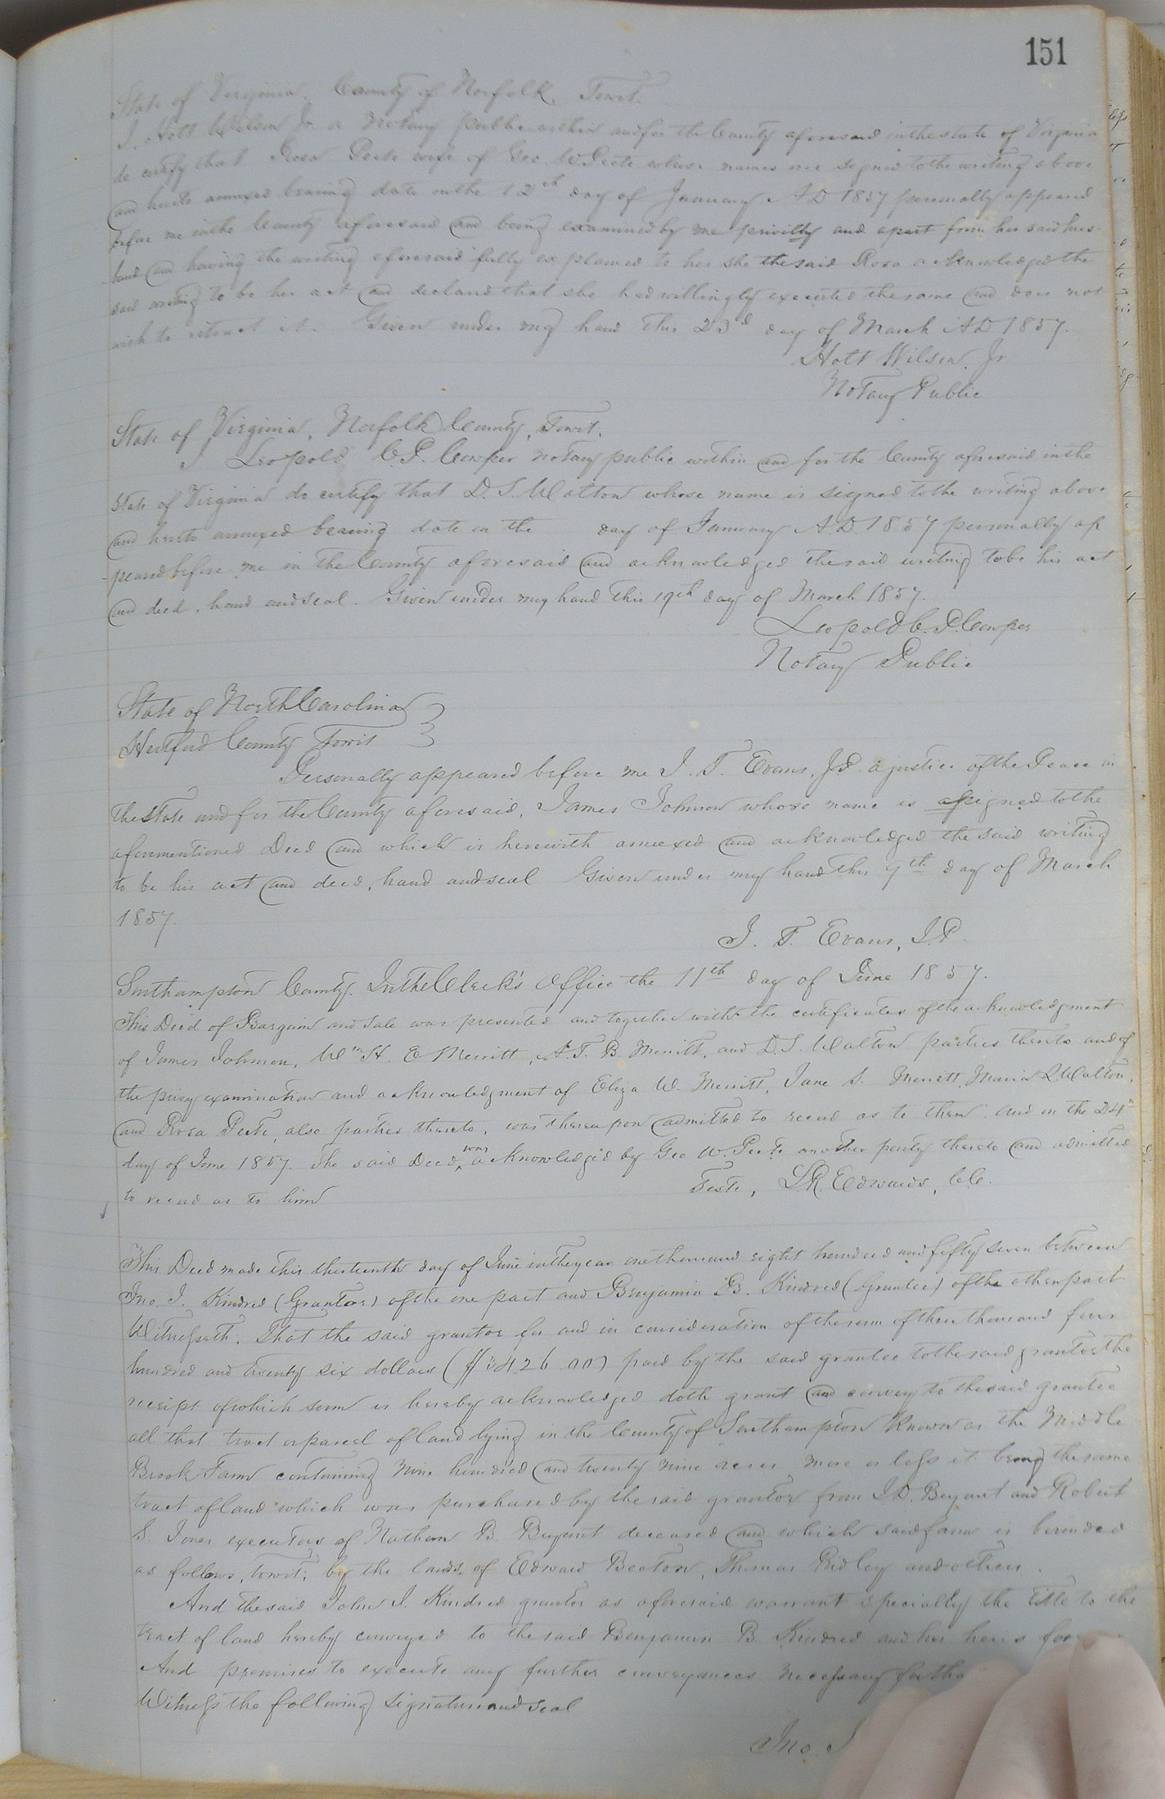 151
State of Virginia. County of Norfolk. Towit.
I. Hott Wilson Jr. a Notary Public within and for the County aforesaid in the state of Virginia
do certify that Rosa Peete wife of Geo W. Peete whose names are signed to the writing above
and hereto annexed bearing date on the 12th day of January AD 1857 personally appeared
before me in the County aforesaid and being examined by me privilly and apart from her said hus-
band and having the writing aforesaid fully explained to her she the said Rosa acknowledged the
said writing to be her act and declared that she had willingly executed the same and does not
wish to retract it. Given under my hand this 23d day of March AD 1857.
Hott Wilson. Jr
Notary Public
State of Virginia, Norfolk County, Towit.
I Leopold C. P. Cowper notary public within and for the County aforesaid in the
State of Virginia do certify that D. S. Walton whose name is signed to the writing above
and hereto annexed bearing date on the day of January A.D. 1857 personally ap
peared before me in the County aforesaid and acknowledged the said writing to be his act
and deed, hand and seal. Given under my hand this 19th day of March 1857.
Leopold C. P. Cowper
Notary Public
State of North Carolina
Hertford County Towit
Personally appeared before me J. T. Evans, J.P. a justice of the Peace in
the State and for the County aforesaid, James Johnson whose name is signed to the
aforementioned Deed and which is herewith annexed and acknowledged the said writing
to be his act and deed, hand and seal Given under my hand this 7th day of March
1857.
J. T. Evans, J.P.
Southampton County. In the Clerk's Office the 11th day of June 1857.
This Deed of Bargain and Sale was presented and together with the certificates of the acknowledgment
of James Johnson, Wm H. E Merritt, A. T. B. Merritt, and D. S. Walton parties thereto and of
the privy examination and acknowledgment of Eliza W. Merritt, Jane S. Merritt, Maria L Walton,
and Rosa Peete, also parties thereto, was thereupon admitted to record as to them. And on the 24th
day of June 1857 the said Deed was acknowledged by Geo W. Peete another party thereto and admitted
to record as to him Teste, L. R. Edwards, C.C.
This Deed made this thirteenth day of June in the year one thousand eight hundred and fifty seven between
Jno. J. Kindred (Grantor) of the one part and Benjamin B. Kindred (Grantee) of the other part
Witnesseth. That the said grantor for and in consideration of the sum of three thousand four
hundred and twenty six dollars ($3426.00) paid by the said grantee to the said grantor the
receipt of which sum is hereby acknowledged doth grant and convey to the said grantee
all that tract or parcel of land lying in the County of Southampton known as the Middle
Brook Farm containing Nine hundred and twenty nine acres more or less it being the same
tract of land which was purchased by the said grantor from J. D. Bryant and Robert
S. Jones executors of Nathan B. Bryant deceased and which said farm is bounded
as follows, towit; by the lands of Edward Beaton, Thomas Ridley and others.
And the said John J. Kindred grantor as aforesaid warrant specially the title to the
tract of land hereby conveyed to the said Benjamin B. Kindred and his heirs
And promises to execute any further conveyances necessary for tha
Witness the following signature and seal
Jno. J